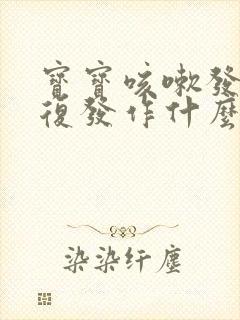 寶寶咳嗽發
復發作什麼
染染纤塵